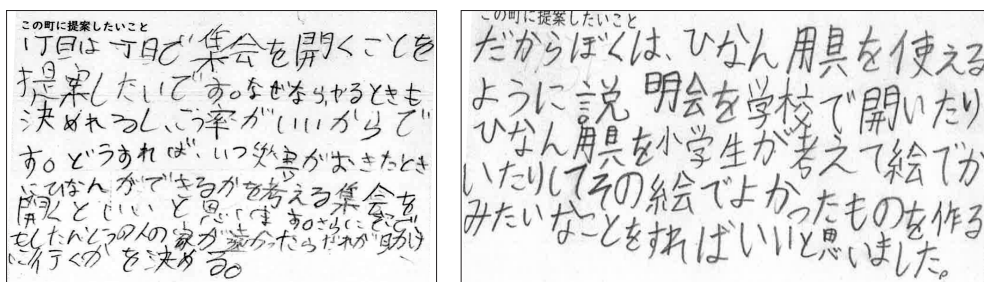 この町に提案したいこと
1丁目は丁目で集会を開くことを
提案したいです。なぜなら、やるときも
決めれるし、こう率がいいからで
す。どうすれば、いつ災害がおきたとき
にひなんができるかを考える集会を
開くといいと思います。さらに
もしたんとうの人の家が遠かったらだれが助け
に行くかを決める。
この町に提案したいこと
だからぼくは、ひなん用具を使える
ように説明会を学校で開いたり
ひなん用具を小学生が考えて絵でか
いたりしてその絵でよかったものを作る
みたいなことをすればいいと思いました。